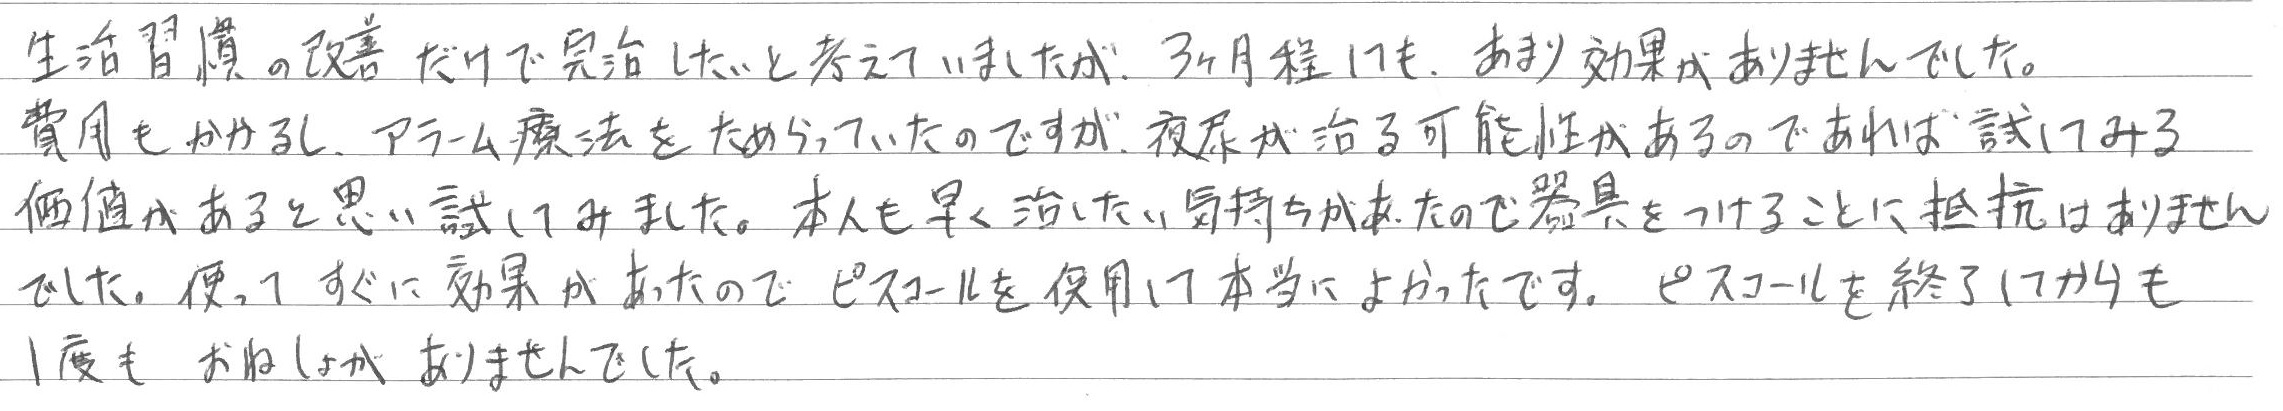 生活習慣の改善だけで完治したいと考えていましたが、3ヶ月程しても、あまり効果がありませんでした。
費用もかかるし、アラーム療法をためらっていたのですが、夜尿が治る可能性があるのであれば試してみる
価値があると思い試してみました。本人も早く治したい気持ちがあったので器具をつけることに抵抗はありません
でした。使ってすぐに効果があったのでピスコールを使用して本当によかったです。ピスコールを終了してからも
1度もおねしょがありませんでした。